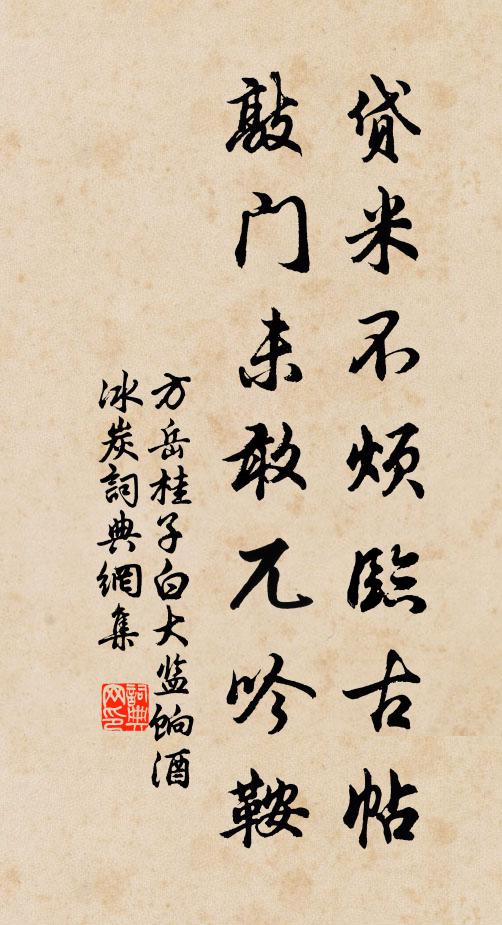 贷米不烦临古帖
敲门未敢兀吟鞍
方岳桂子白大监饷酒
冰炭詞典網集
詞典
网印